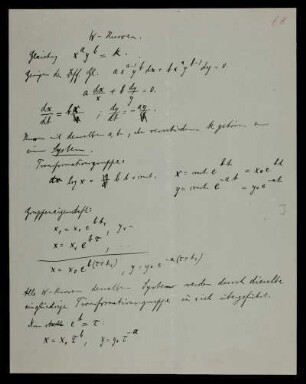 W-Kurven.
Gleichung x^a y^b = k.
Zeigen die Diff. Gl. a x^{a-1} y^b dx + b x^a y^{b-1} dy = 0.
a dx/x + b dy/y = 0.
dx/dt = bx ; dy/dt = -ay
mit denselben a, b, die verschiedenen k gehören zu
einem System.
Transformationsgruppe:
log x = b t + const.
x = const. e^{bt} = x_0 e^{bt}
y = const. e^{-at} = y_0 e^{-at}
Gruppeneigenschaft:
x_1 = x_0 e^{bt_1}, y_1 =
x = x_1 e^{bτ},
x = x_0 e^{b(τ+t_1)}, y = y_0 e^{-a(τ+t_1)}
Alle W-Kurven desselben Systems werden durch dieselbe
eingliedrige Transformationsgruppe in sich übergeführt.
e^t = τ.
x = x_0 τ^b, y = y_0 τ^{-a}